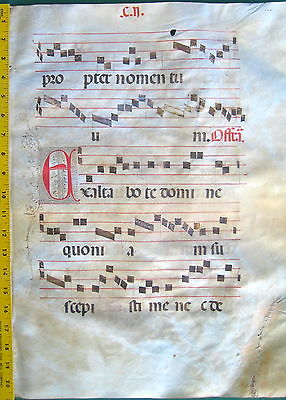 C.II.
pro pter nomen tu
u m. Offa.
Exalta bo te domi ne
quoni a m su
scepi sti me ne c de